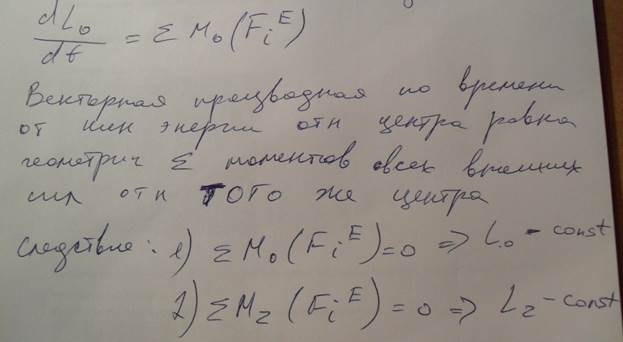 dL₀/dt = Σ M₀(Fᵢᴱ)
Векторная процводная по времени
от кин энергии отн центра равна
геометрич Σ моментов всех внешних
сил отн ТОГО же центра
Следствие: 1) Σ M₀(Fᵢᴱ)=0 => L₀ - const
2) Σ M_z (Fᵢᴱ) = 0 => L_z - const